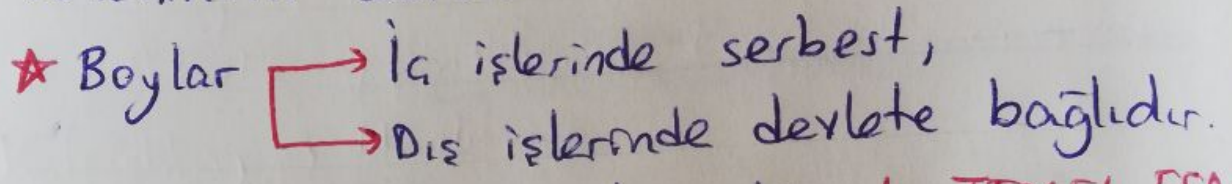 ☆ Boylar → İç işlerinde serbest,
→ Dış işlerinde devlete bağlıdır.